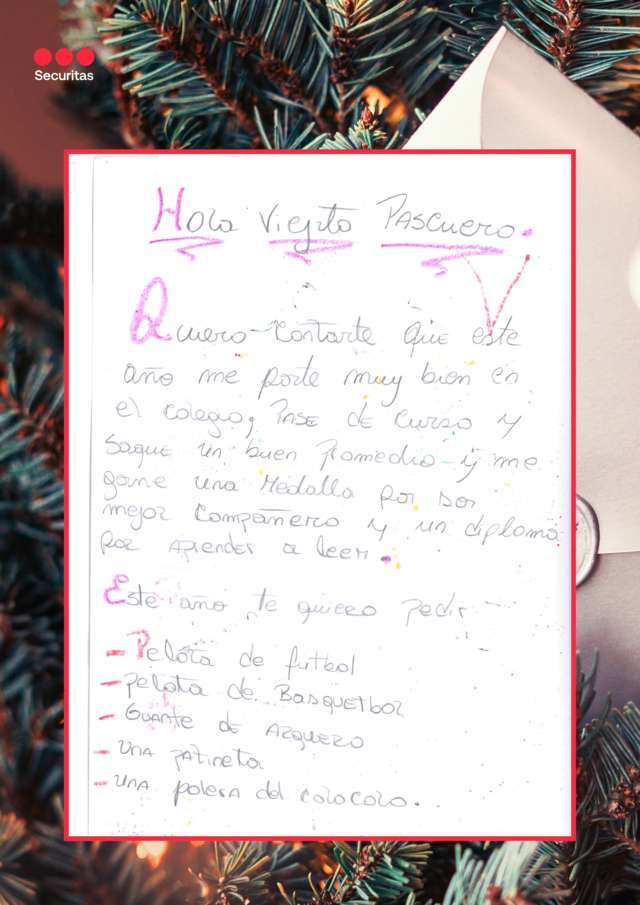 Securitas
Hola Viejito Pascuero.
Quiero contarte que este
año me porte muy bien en
el colegio, Pase de curso y
saque un buen promedio y me
gane una Medalla por ser
mejor Compañero y un diploma
por aprender a leer.
Este año te quiero pedir
- Pelota de futbol
- pelota de Basquetbol
- Guante de Arquero
- una patineta
- una polera del colo colo.